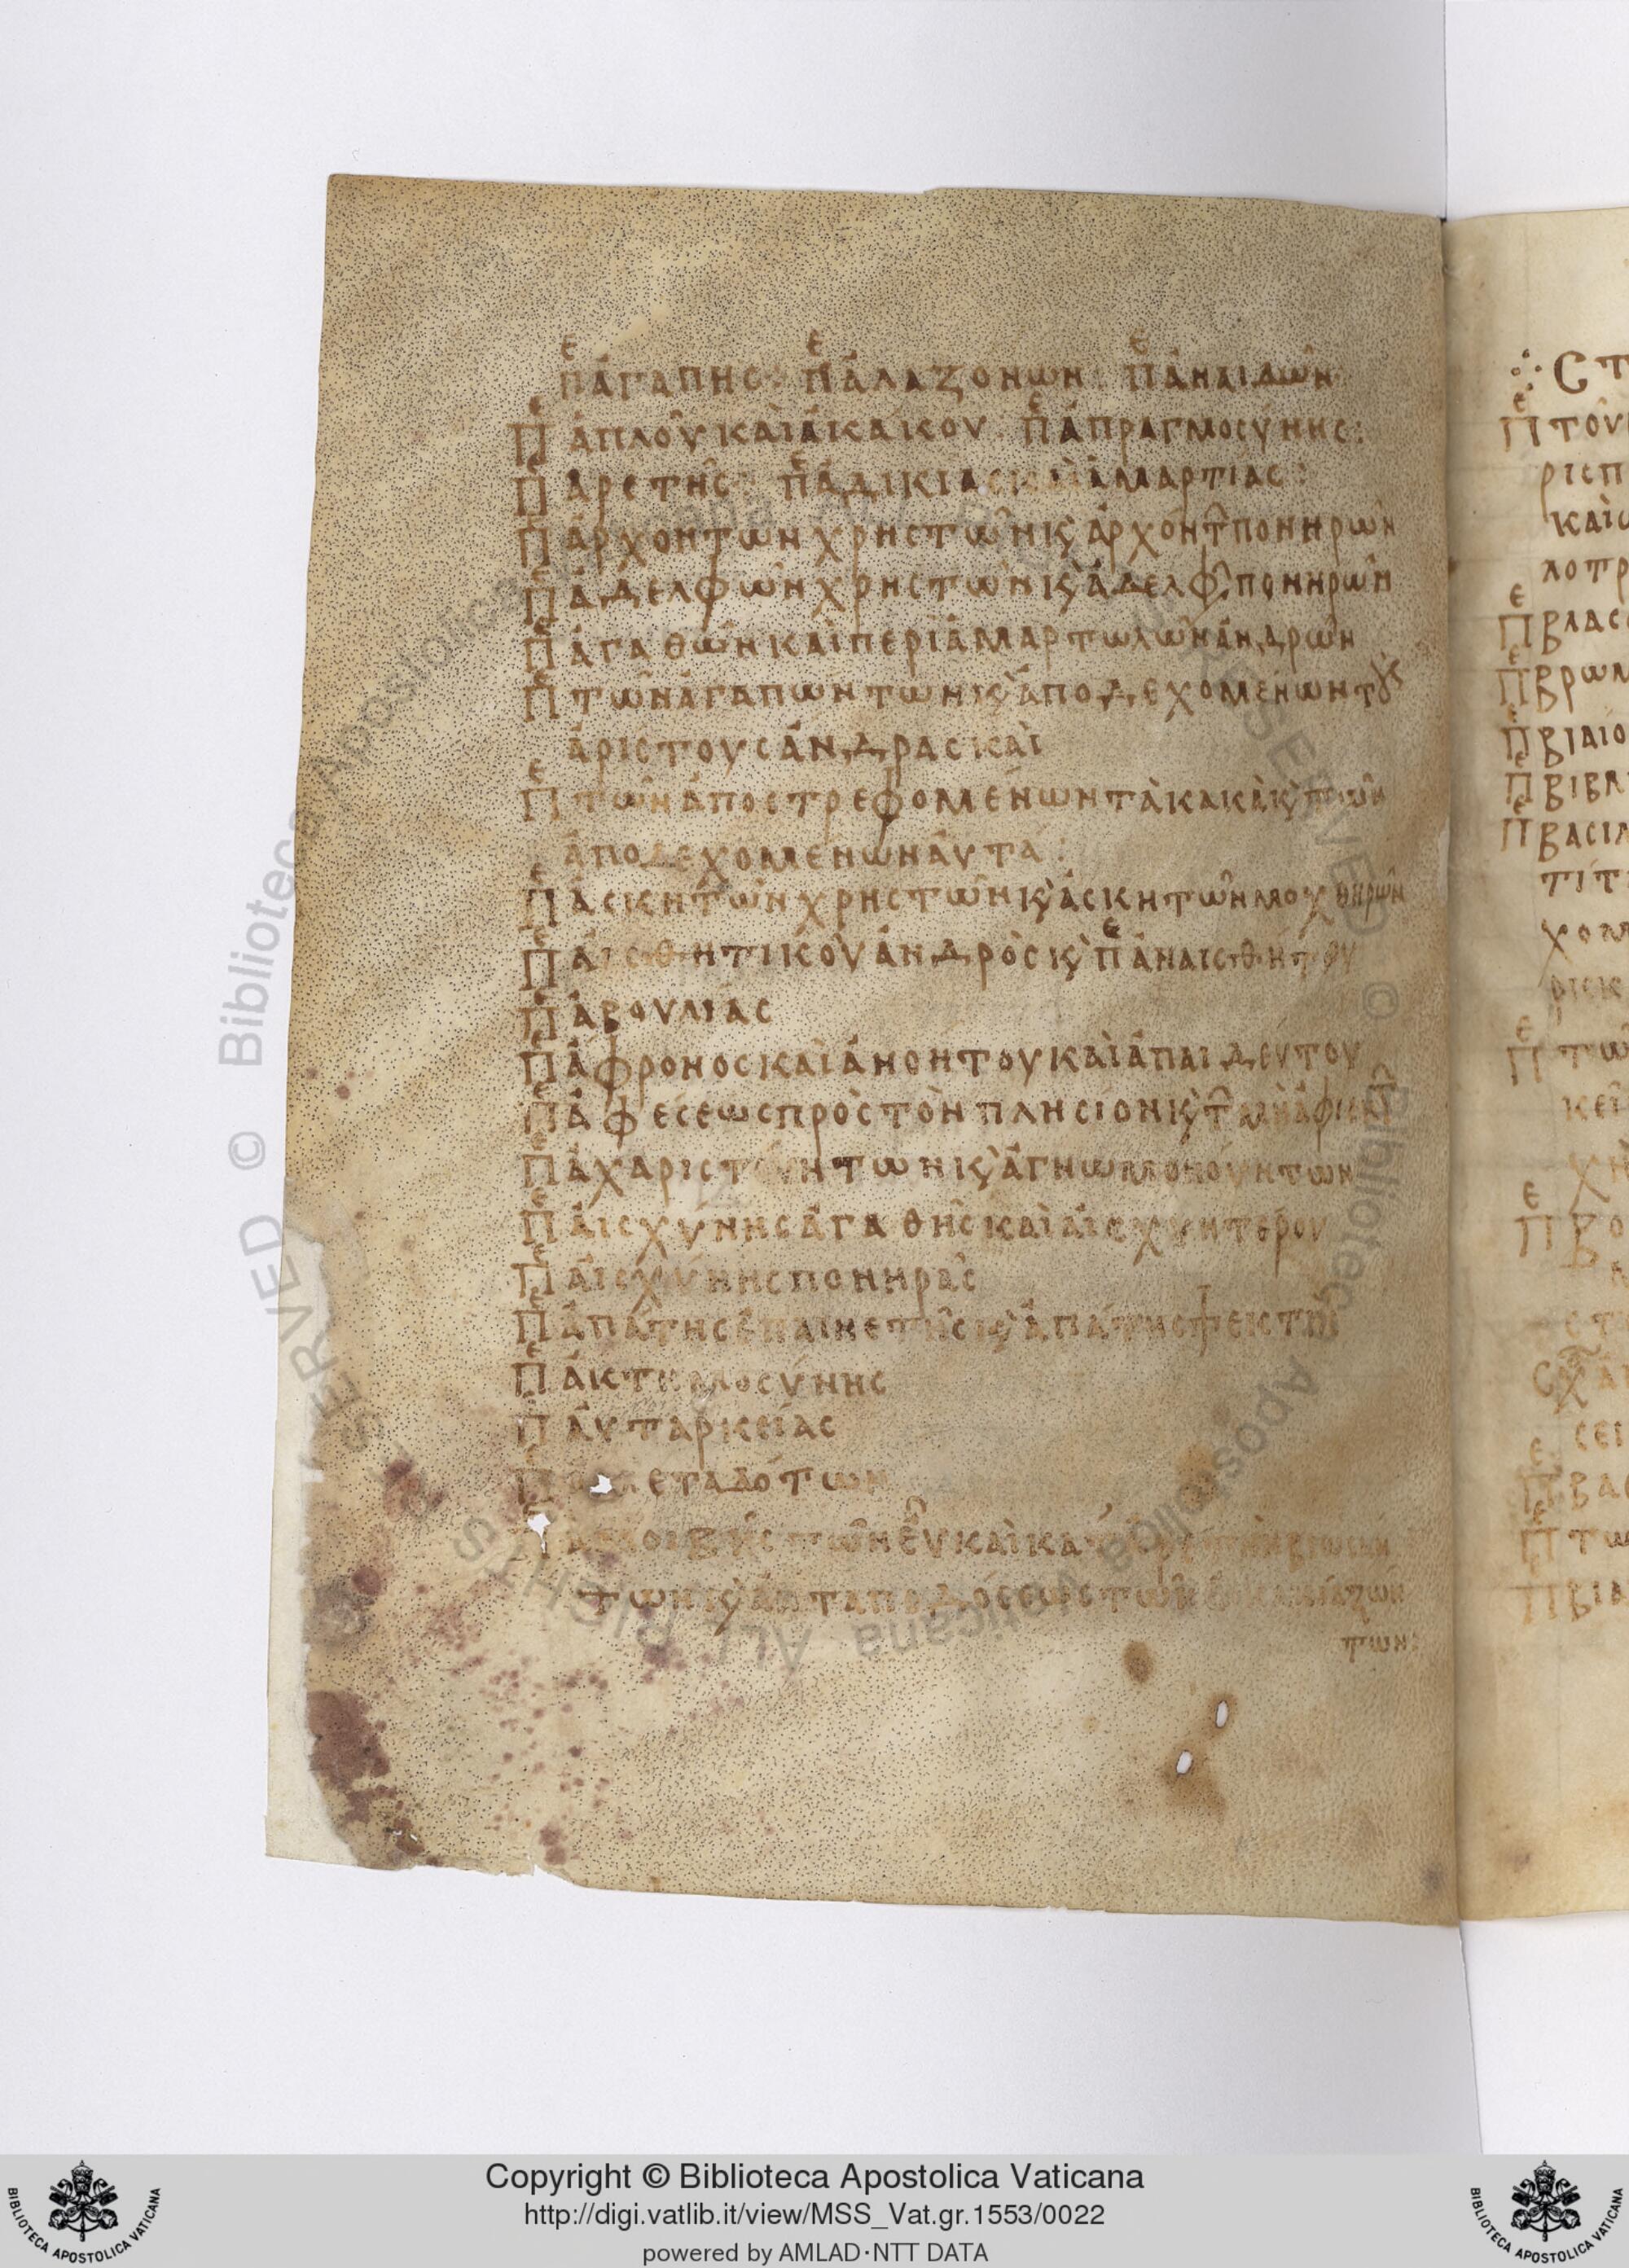 Πε ἀγάπης: Πε ἀλαζόνων: Πε ἀναιδῶν
Πε ἁπλοῦ καὶ ἀκάκου: Πε ἀπραγμοσύνης:
Πε ἀρετῆς: Πε ἀδικίας καὶ ἁμαρτίας:
Πε ἀρχόντων χρηστῶν κ(αὶ) ἀρχόντ πονηρῶν
Πε ἀδελφῶν χρηστῶν κ(αὶ) ἀδελφ πονηρῶν
Πε ἀγαθῶν καὶ περὶ ἁμαρτωλῶν ἀνδρῶν
Πε τῶν ἀγαπώντων κ(αὶ) ἀποδεχομένων τοὺς
ἀρίστους ἄνδρας καὶ
Πε τῶν ἀποστρεφομένων τὰ κακὰ κ(αὶ) π τῶν
ἀποδεχομένων αὐτά:
Πε ἀσκητῶν χρηστῶν κ(αὶ) ἀσκητῶν μοχθηρῶν
Πε αἰσθητικοῦ ἀνδρὸς κ(αὶ) Πε ἀναισθήτου
Πε ἀβουλίας
Πε ἄφρονος καὶ ἀνοήτου καὶ ἀπαιδεύτου
Πε ἀφέσεως πρὸς τὸν πλησίον κ(αὶ) τ μὴ
Πε ἀχαριστούντων κ(αὶ) ἀγνωμονούντων
Πε αἰσχύνης ἀγαθῆς καὶ αἰσχυντεροῦ
Πε αἰσχύνης πονηρᾶς
Πε ἀπάτης ἐπαινετῆς κ(αὶ) ἀπάτης ψεκτῆς
Πε ἀκτημοσύνης
Πε αὐταρκείας
Πε ἀμεταδότων
ἀμοιβῆς τῶν εὖ καὶ
των κ(αὶ) ἀνταποδόσεως τῶν
των:
Copyright © Biblioteca Apostolica Vaticana
http://digi.vatlib.it/view/MSS_Vat.gr.1553/0022
powered by AMLAD·NTT DATA